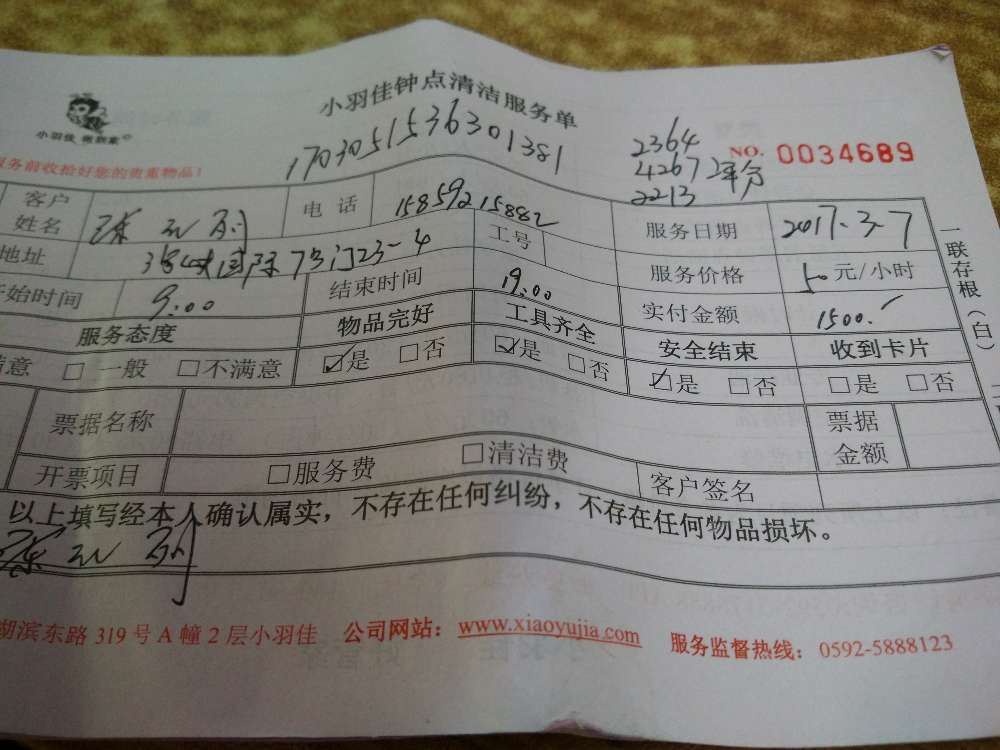 小羽佳钟点清洁服务单
小羽佳
1703051536301381
2364
4267 平分
2213
NO. 0034689
服务前收拾好您的贵重物品!
客户姓名 电话 15859215882 服务日期 2017.3.7
地址 7号门23-4 工号 服务价格 50元/小时
开始时间 9:00 结束时间 19:00 实付金额 1500.
服务态度 物品完好 工具齐全 安全结束 收到卡片
满意 □一般 □不满意 ☑是 □否 ☑是 □否 ☑是 □否 □是 □否
票据名称 票据金额
开票项目 □服务费 □清洁费 客户签名
以上填写经本人确认属实,不存在任何纠纷,不存在任何物品损坏。
湖滨东路 319 号 A 幢 2 层小羽佳 公司网站:www.xiaoyujia.com 服务监督热线:0592-5888123
一联存根(白)